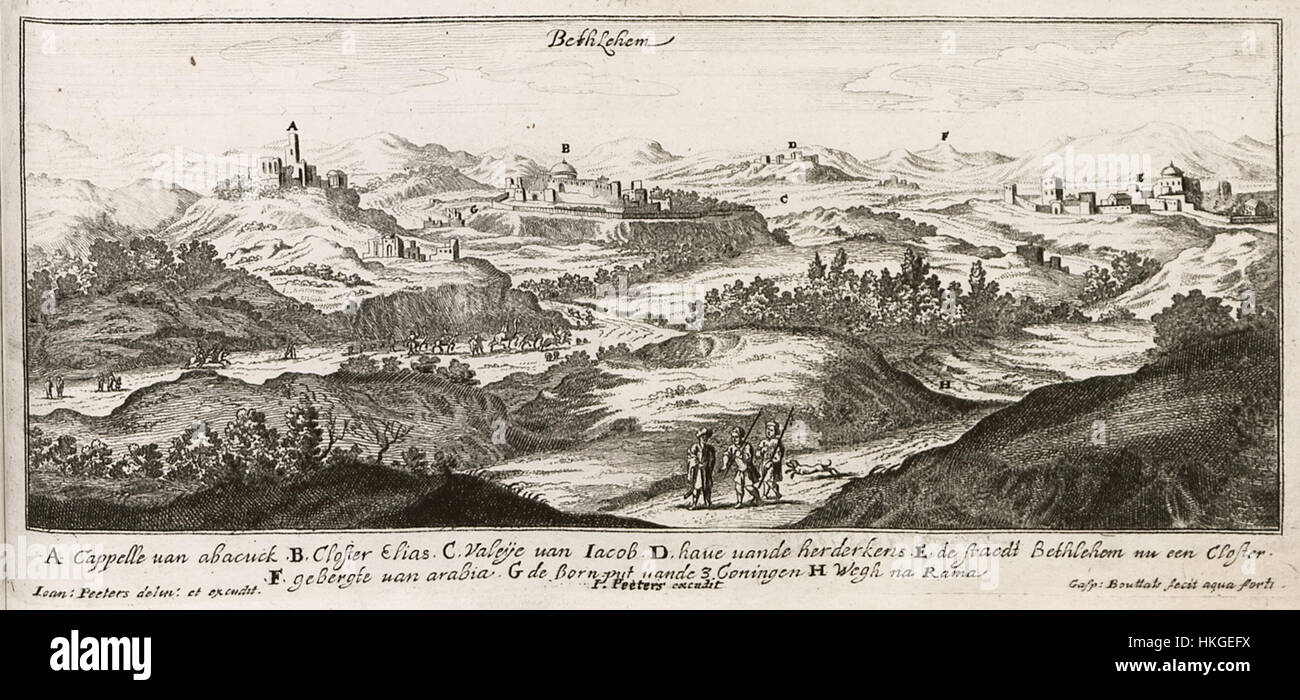 Bethlehem
A
B
D
F
E
C
G
H
A Cappelle van abacuck B. Closter Elias. C. Valeÿe van Iacob. D. haue vande herderkens E. de staedt Bethlehem nu een Closter.
F. gebergte van arabia. G de Born put vande 3 Coningen H Wegh na Rama
Ioan: Peeters delin: et excudit.
P. Peeters excudit
Gasp: Bouttats fecit aqua forti
alamy
alamy stock photo
HKGEFX
www.alamy.com